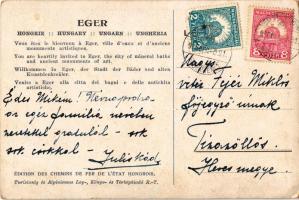 EGER
HONGRIE :: HUNGARY :: UNGARN :: UNGHERIA
Vous êtes le bienvenu à Eger, ville d'eaux et d'anciens
monuments artistiques.
You are heartily invited to Eger, the city of mineral baths
and ancient monuments of art.
Willkommen in Eger, der Stadt der Bäder und alten
Kunstdenkmäler.
Venite a Eger alla città dei bagni e delle antichità
artistiche.
Édes Mikim!
az egész família nevében
gratulál - sok
sok csókkal - Juliskád
ÉDITION DES CHEMINS DE FER DE L'ÉTAT HONGROIS.
Turistaság és Alpinizmus Lap-, Könyv- és Térképkiadó R.-T.
2
8 8
Nagys.
vitéz Fejér Miklós
főjegyző úrnak
Tiszaszőllős.
Heves megye.